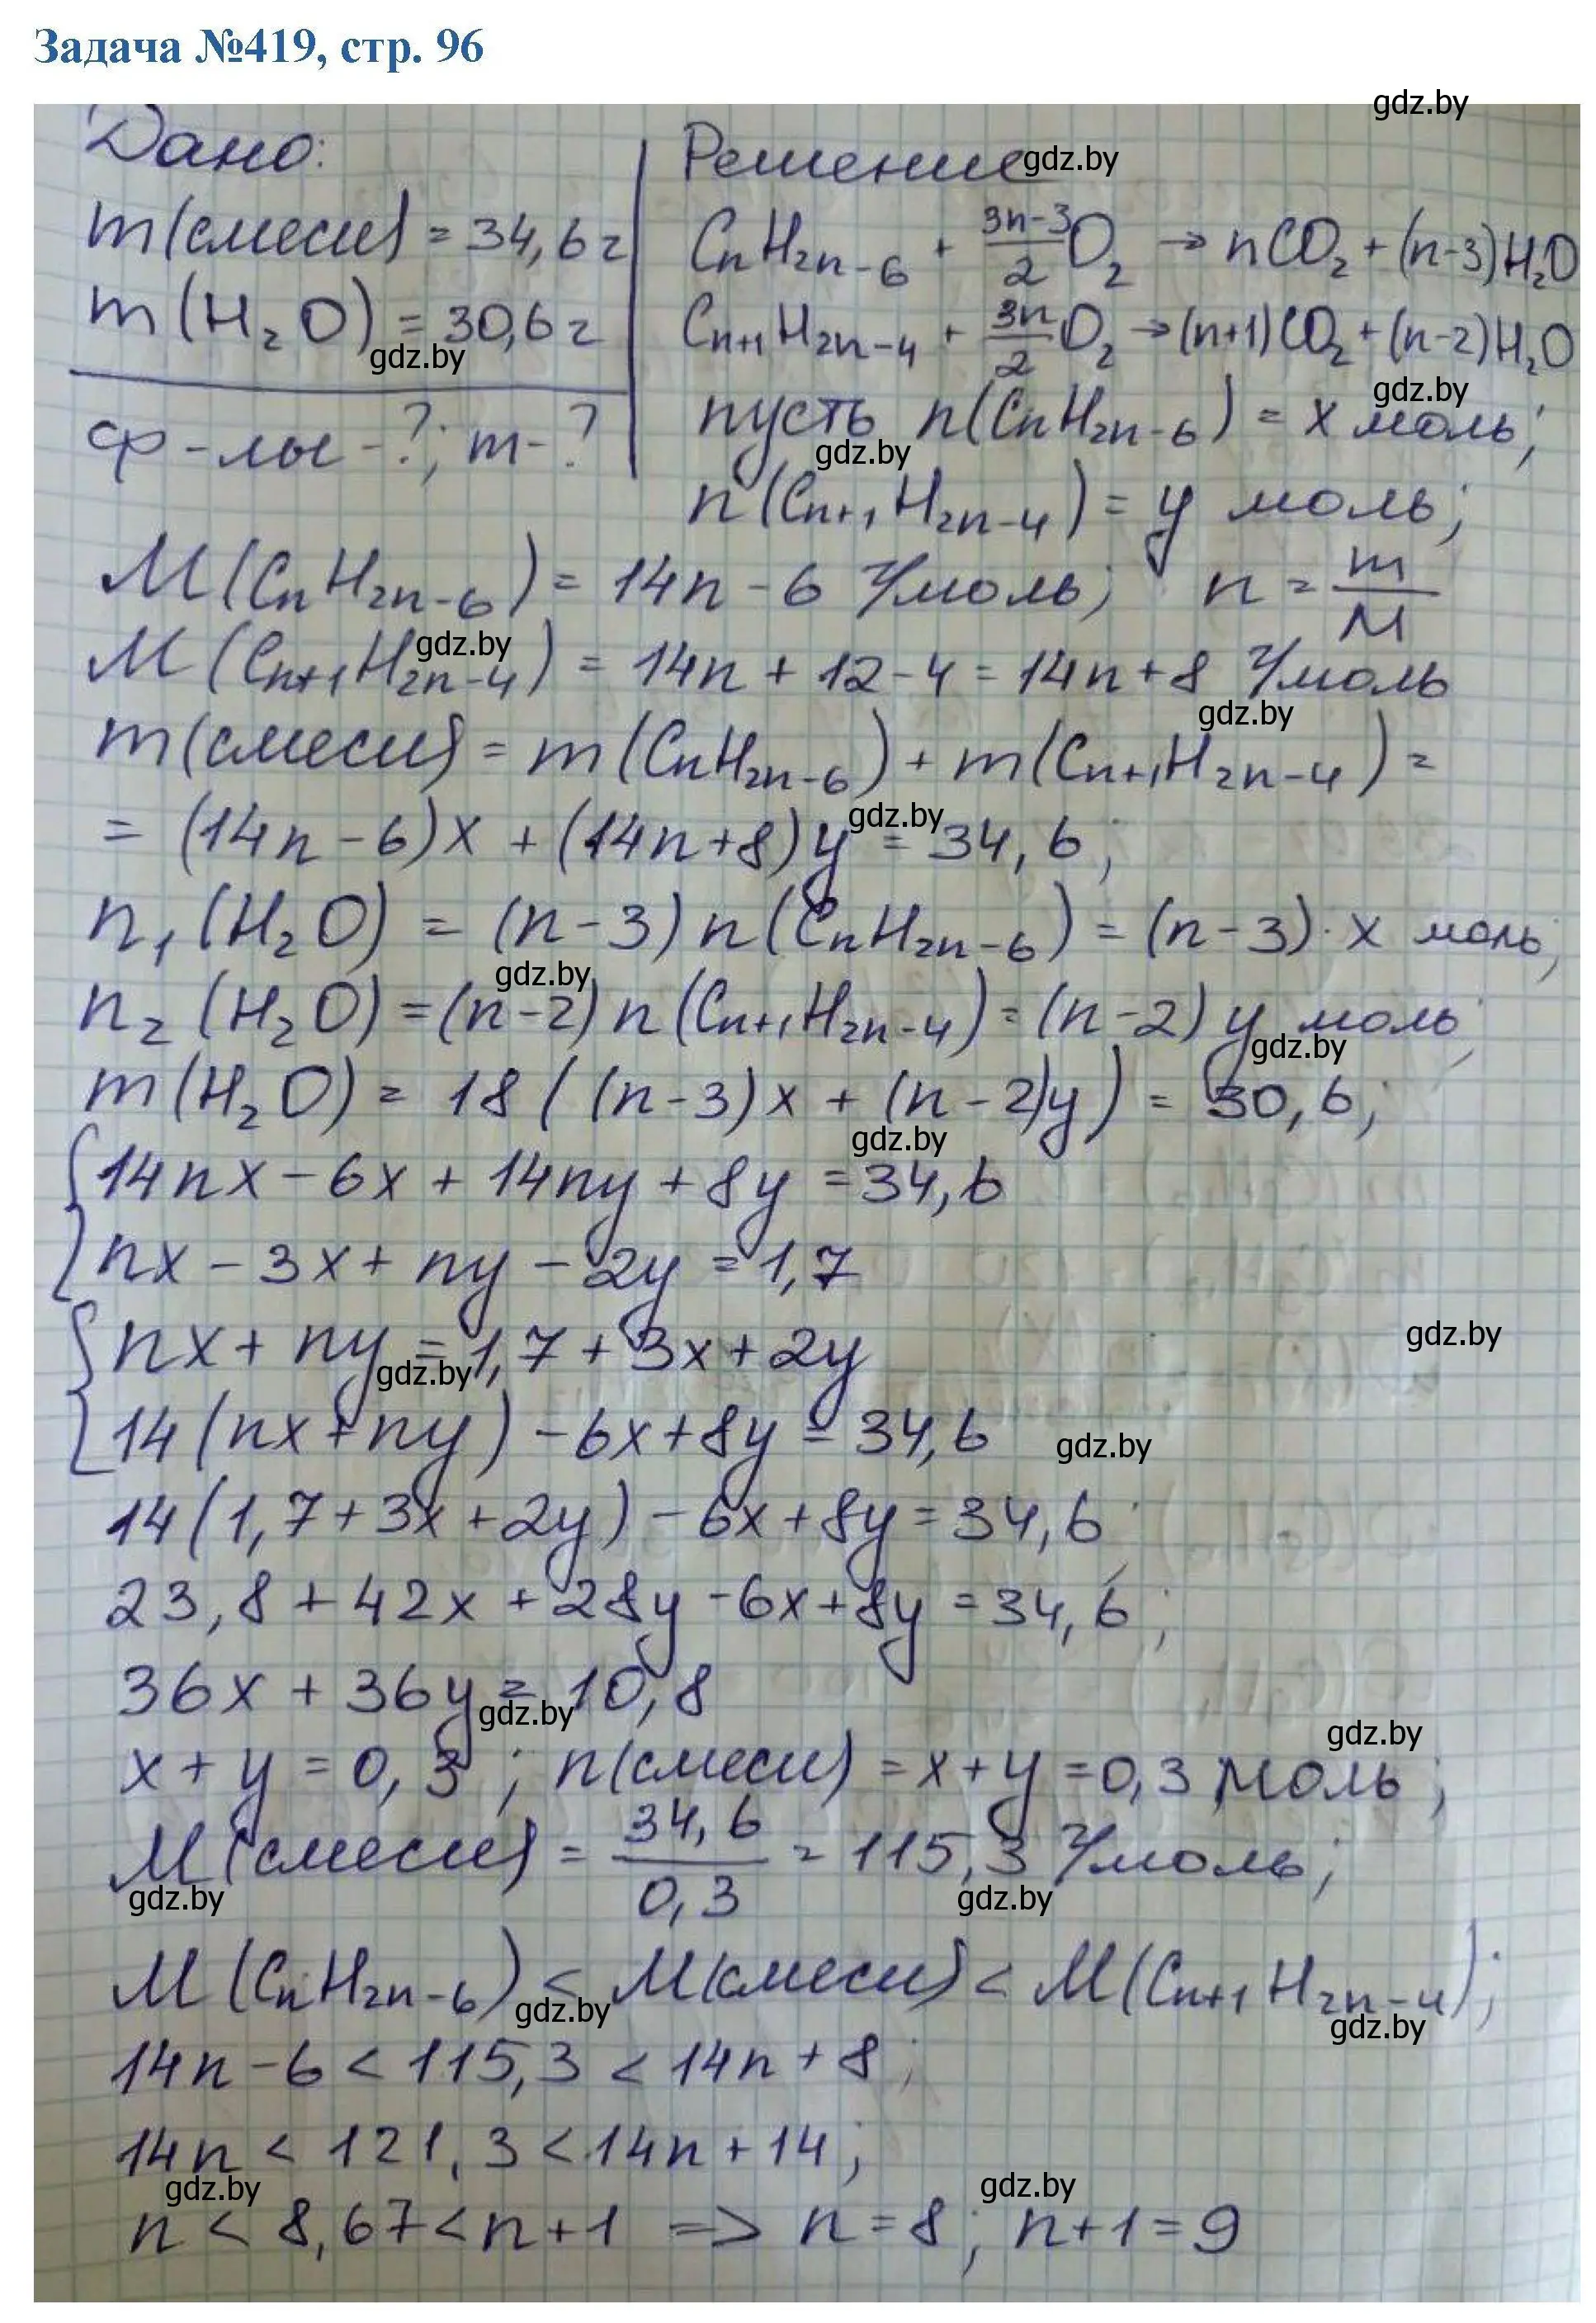 Задача №419, стр. 96
gdz.by
Дано:
m(смеси) = 34,6 г
m(H₂O) = 30,6 г
gdz.by
ф-лы - ?; m - ?
Решение gdz.by
CnH2n-6 + (3n-3)/2 O₂ → nCO₂ + (n-3)H₂O
Cn+1H2n-4 + 3n/2 O₂ → (n+1)CO₂ + (n-2)H₂O
gdz.by
пусть n(CnH2n-6) = x моль;
gdz.by
n(Cn+1H2n-4) = y моль;
M(CnH2n-6) = 14n - 6 г/моль; n = m/M
gdz.by
M(Cn+1H2n-4) = 14n + 12 - 4 = 14n + 8 г/моль
gdz.by
m(смеси) = m(CnH2n-6) + m(Cn+1H2n-4) =
gdz.by
= (14n - 6)x + (14n + 8)y = 34,6;
n₁(H₂O) = (n - 3) n(CnH2n-6) = (n - 3) · x моль;
gdz.by
n₂(H₂O) = (n-2) n(Cn+1H2n-4) = (n-2) y моль;
gdz.by
m(H₂O) = 18 ((n-3)x + (n-2)y) = 30,6;
gdz.by
{14nx - 6x + 14ny + 8y = 34,6
nx - 3x + ny - 2y = 1,7
gdz.by
{nx + ny = 1,7 + 3x + 2y
gdz.by
14(nx + ny) - 6x + 8y = 34,6
gdz.by
14(1,7 + 3x + 2y) - 6x + 8y = 34,6
23,8 + 42x + 28y - 6x + 8y = 34,6;
36x + 36y = 10,8
gdz.by
gdz.by
x + y = 0,3; n(смеси) = x + y = 0,3 моль;
M(смеси) = 34,6/0,3 = 115,3 г/моль;
gdz.by
gdz.by
M(CnH2n-6) < M(смеси) < M(Cn+1H2n-4);
gdz.by
gdz.by
14n - 6 < 115,3 < 14n + 8;
14n < 121,3 < 14n + 14;
gdz.by
gdz.by
n < 8,67 < n+1 => n = 8; n+1 = 9